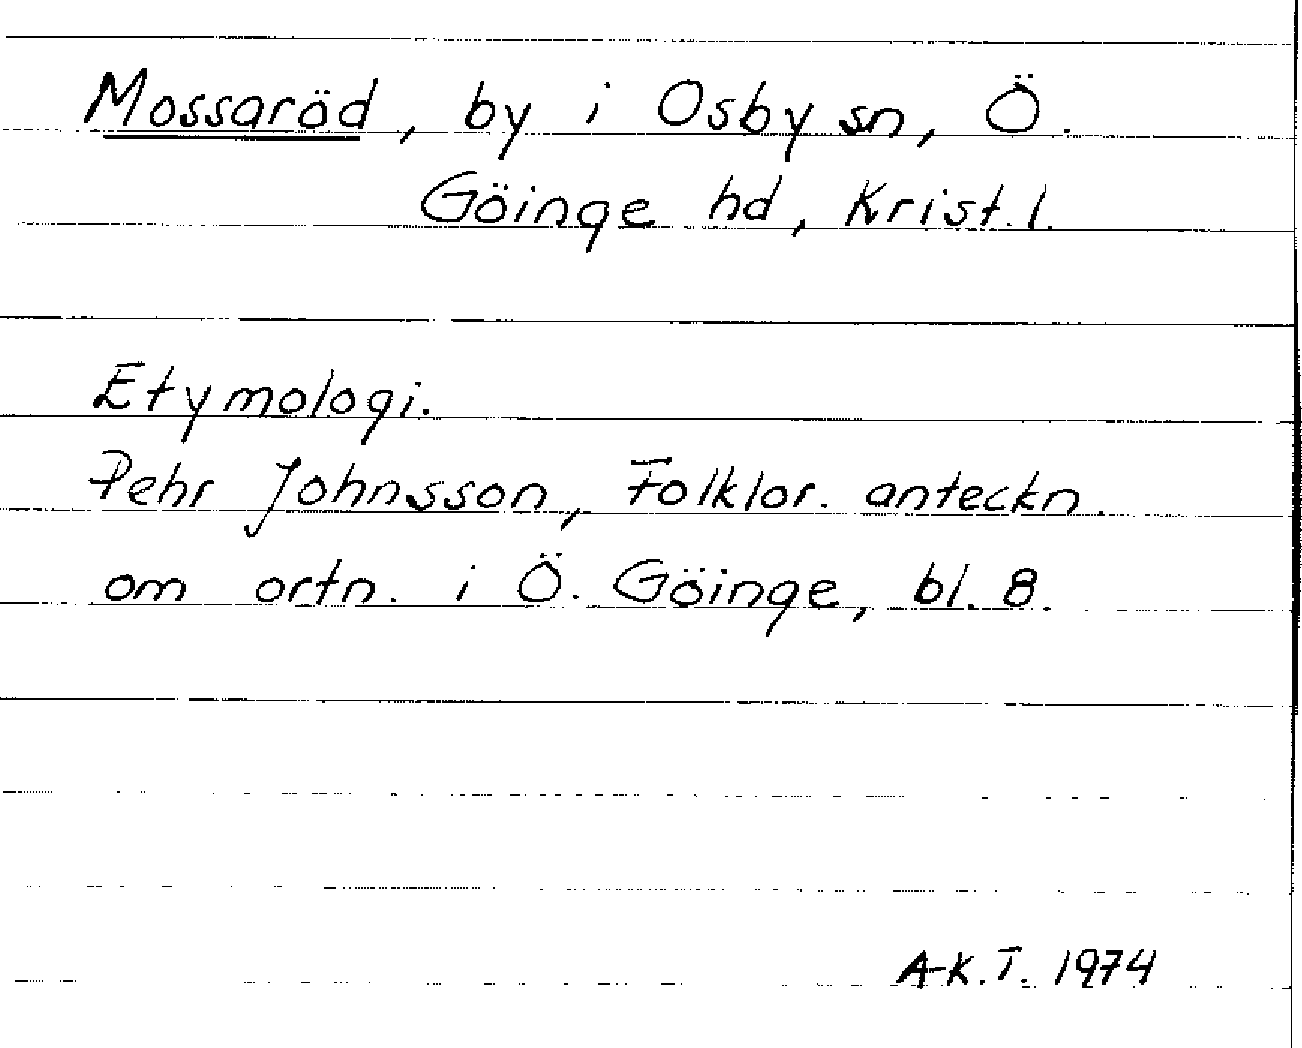 Mossaröd, by i Osby sn, Ö.
Göinge hd, Krist. l.
Etymologi.
Pehr Johnsson, Folklor. anteckn.
om ortn. i Ö. Göinge, bl. 8.
A-K.T. 1974